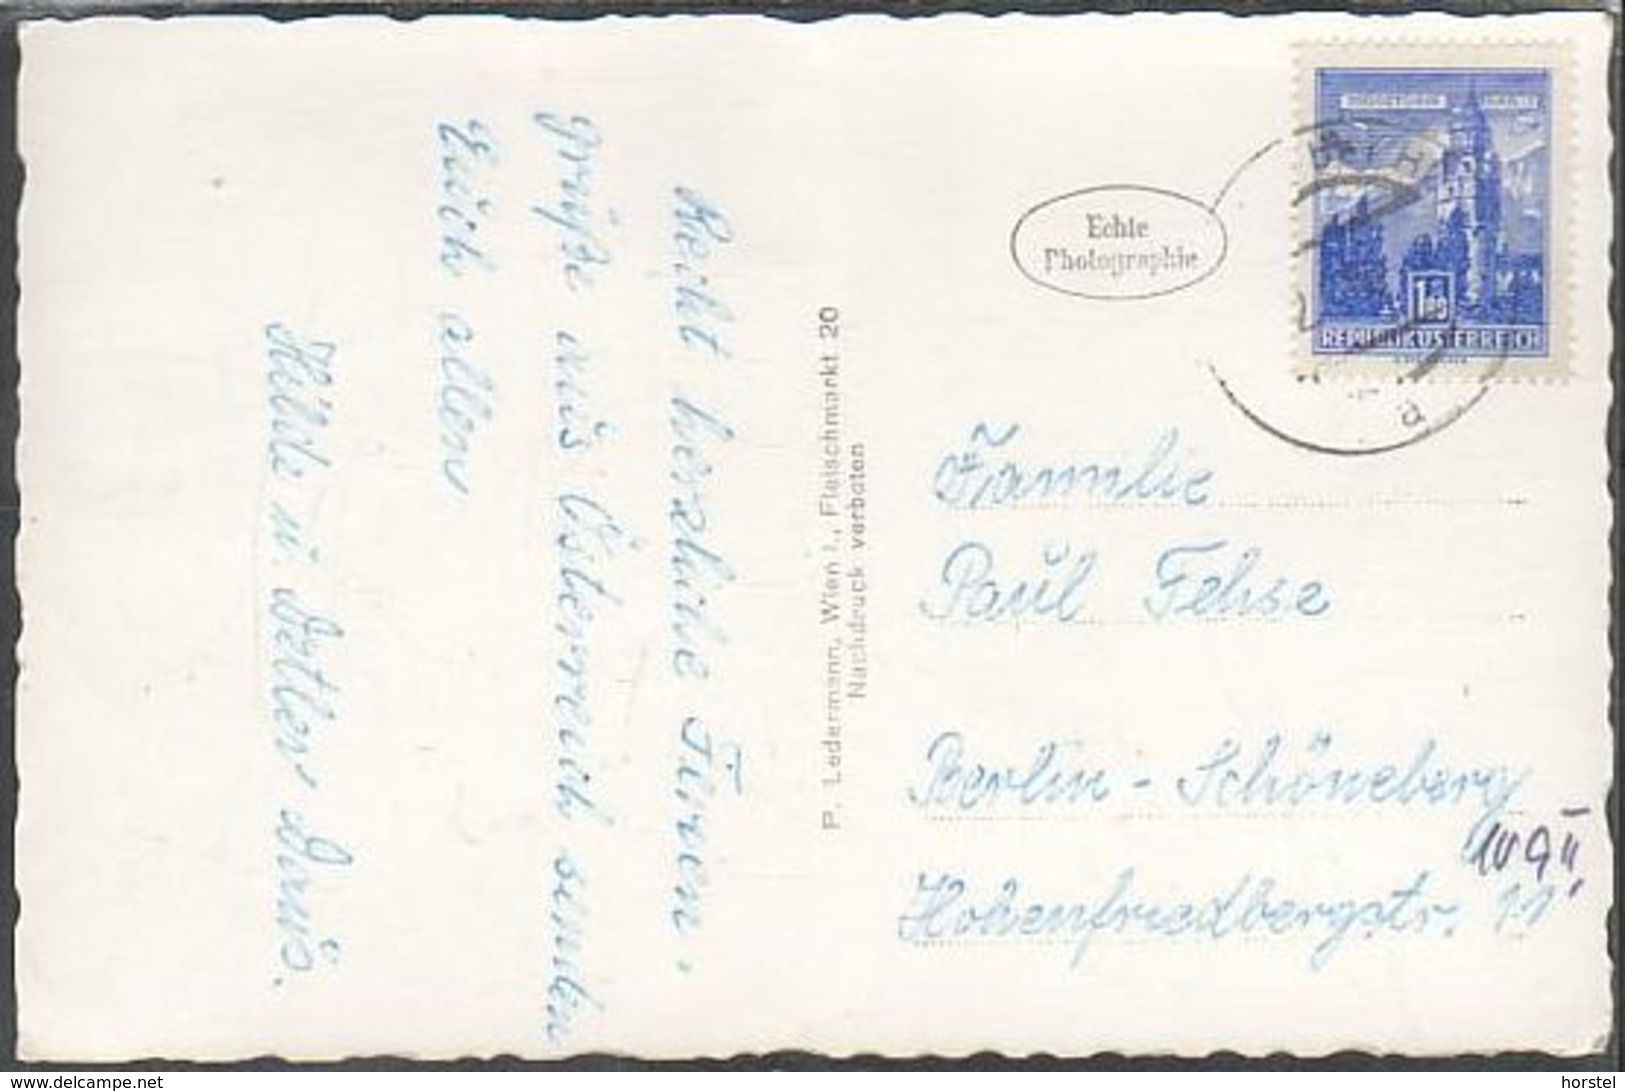 Recht herzliche Ferien-
grüße aus Österreich senden
Euch allen
Hilde u. Detlev
P. Ledermann, Wien I., Fleischmarkt 20
Nachdruck verboten
Echte
Photographie
REPUBLIK ÖSTERREICH
a
Familie
Paul Fehse
Berlin - Schöneberg
Hohenfriedbergstr. 11
www.delcampe.net
horstel